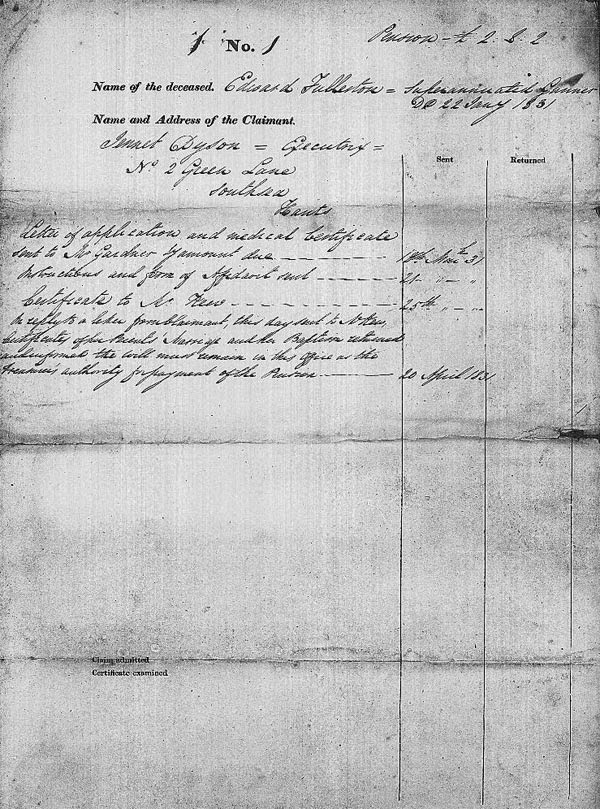 No. 1
Pension - £ 2. 8. 2
Name of the deceased. Edward Fullerton = Superannuated Gunner
DD 22 Jany 1831
Name and Address of the Claimant.
Jennet Dyson = Executrix =
No 2 Green Lane
Southsea
Hants
Sent
Returned
Letter of application and medical Certificate
sent to Mr Gardner & amount due
Instructions and form of Affidavit sent
21 " "
Certificate to Mr
25th " "
In reply to a letter from Claimant, this day sent to
Certificates of her Parents Marriage and her Baptism returned
and informed the will must remain in this Office as the
Treasurers authority for payment of the Pension
20 April 1831
Claim admitted
Certificate examined